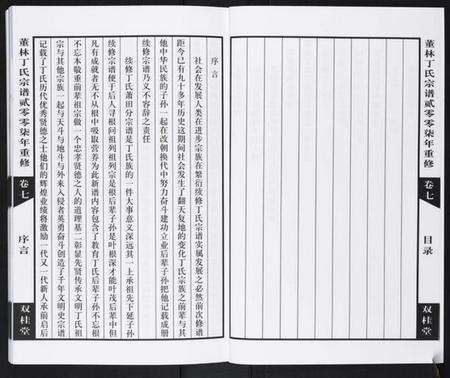 董林丁氏宗谱贰零零柒年重修
卷七
目录
双桂堂
序言
社会在发展人类在进步宗族在繁衍续修丁氏宗谱实属发展之必然前次修谱
距今已有九十多年历史这期间社会发生了翻天复地的变化丁氏宗族之前辈与其
他中华民族的子孙一起在改朝换代中努力奋斗建功立业后辈子孙把他记载成册
续修宗谱乃义不容辞之责任
续修丁氏莆田分宗谱是丁氏族的一件大事意义深远其一上承祖先下延子孙
续修宗谱便于后人寻根问祖列祖列宗是根后辈子孙是叶根深才能叶茂后辈中但
凡有成就者无不从根中吸取营养为此新谱内容包含了教育丁氏后辈子孙不忘根
不忘本敬重前辈祖宗做一个忠孝贤德之人的道理其二彰显先贤传承文明丁氏祖
宗与其他宗族一起与天斗与地斗与外来入侵者英勇奋斗创造了千年文明史宗谱
记载了丁氏历代优秀贤德之士他们的辉煌业绩将激励一代又一代新人承前启后
董林丁氏宗谱贰零零柒年重修
卷七
序言
双桂堂